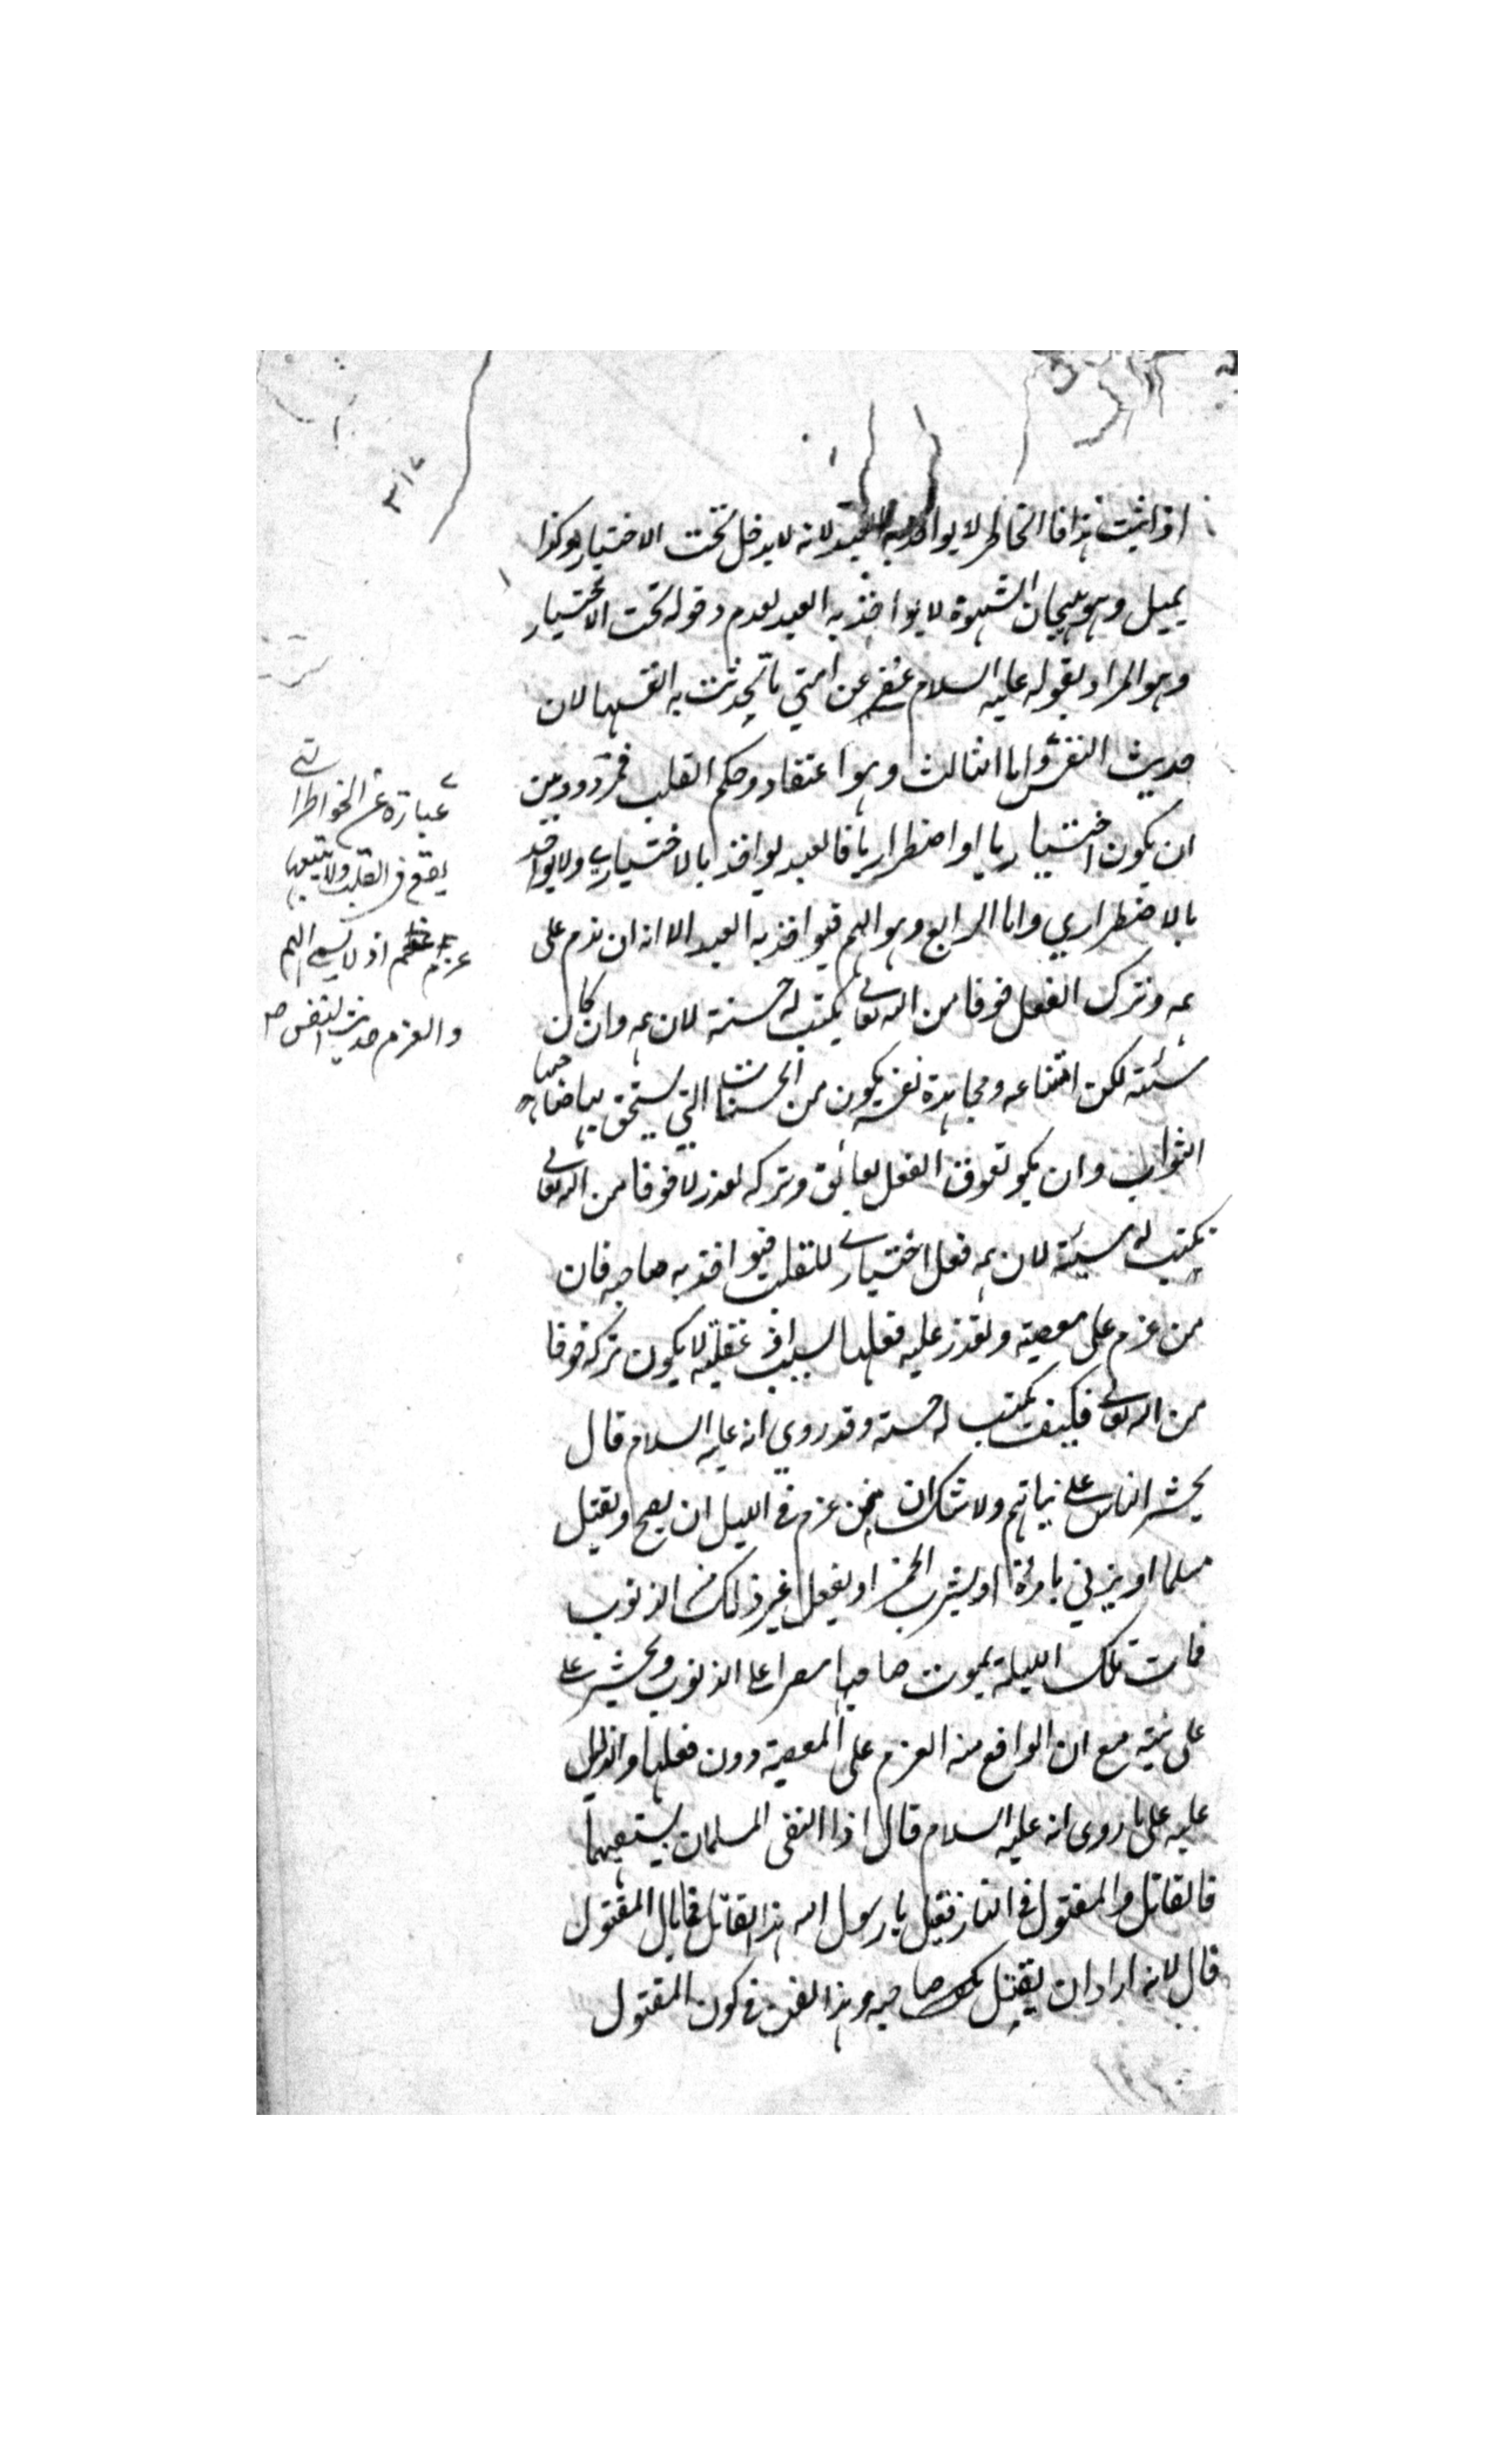 اذا ثبت هذا فالخاطر لا يواخذ به العبد لانه لا يدخل تحت الاختيار وكذا
يميل وهو هيجان الشهوة لا يواخذ به العبد لعدم دخوله تحت الاختيار
وهو المراد بقوله عليه السلام عفى عن امتي ما تحدثت به انفسها لان
حديث النفس واما الثالث وهو اعتقاد وحكم القلب فمردود بين
ان يكون اختياريا او اضطراريا فالعبد يواخذ بالاختياري ولا يواخذ
بالاضطراري واما الرابع وهو الهم فيواخذ به العبد الا انه ان ندم على
همه وترك الفعل خوفا من الله تعالى يكتب له حسنة لان همه وان كان
سيئة لكن امتناعه ومجاهدة نفسه يكون من الحسنات التي يستحق بها صاحبها
الثواب وان يكو تعوق الفعل بعائق وتركه لعذر لا خوفا من الله تعالى
يكتب له سيئة لان همه فعل اختياري للقلب فيواخذ به صاحبه فان
من عزم على معصية وتعذر عليه فعلها بسبب او غفلة لا يكون تركه خوفا
من الله تعالى فكيف يكتب له حسنة وقد روي انه عليه السلام قال
يحشر الناس على نياتهم ولا شك ان من عزم في الليل ان يصبح ويقتل
مسلما او يزني بامرئة او يشرب الخمر او يفعل غير ذلك من الذنوب
فمات تلك الليلة يموت صاحبها مصرا على الذنوب ويحشر على
على نيته مع ان الواقع منه العزم على المعصية دون فعلها والدليل
عليه على ما روى انه عليه السلام قال اذا التقى المسلمان بسيفهما
فالقاتل والمقتول في النار فقيل يا رسول الله هذا القاتل فما بال المقتول
قال لانه اراد ان يقتل صاحبه وهذا نص في كون المقتول
عبارة عن الخواطر التي
يقع في القلب ولا يتبعها
عزم اذ لا يسمى الهم
والعزم حديث النفس صح